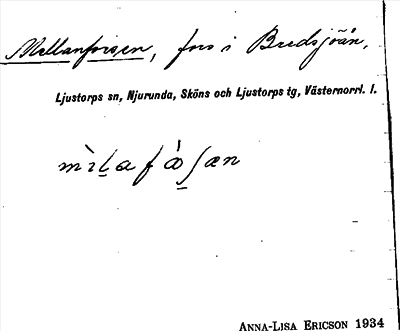 Mellanforsen, fors i Bredsjöån,
Ljustorps sn, Njurunda, Sköns och Ljustorps tg, Västernorrl. l.
mìlaf
ANNA-LISA ERICSON 1934